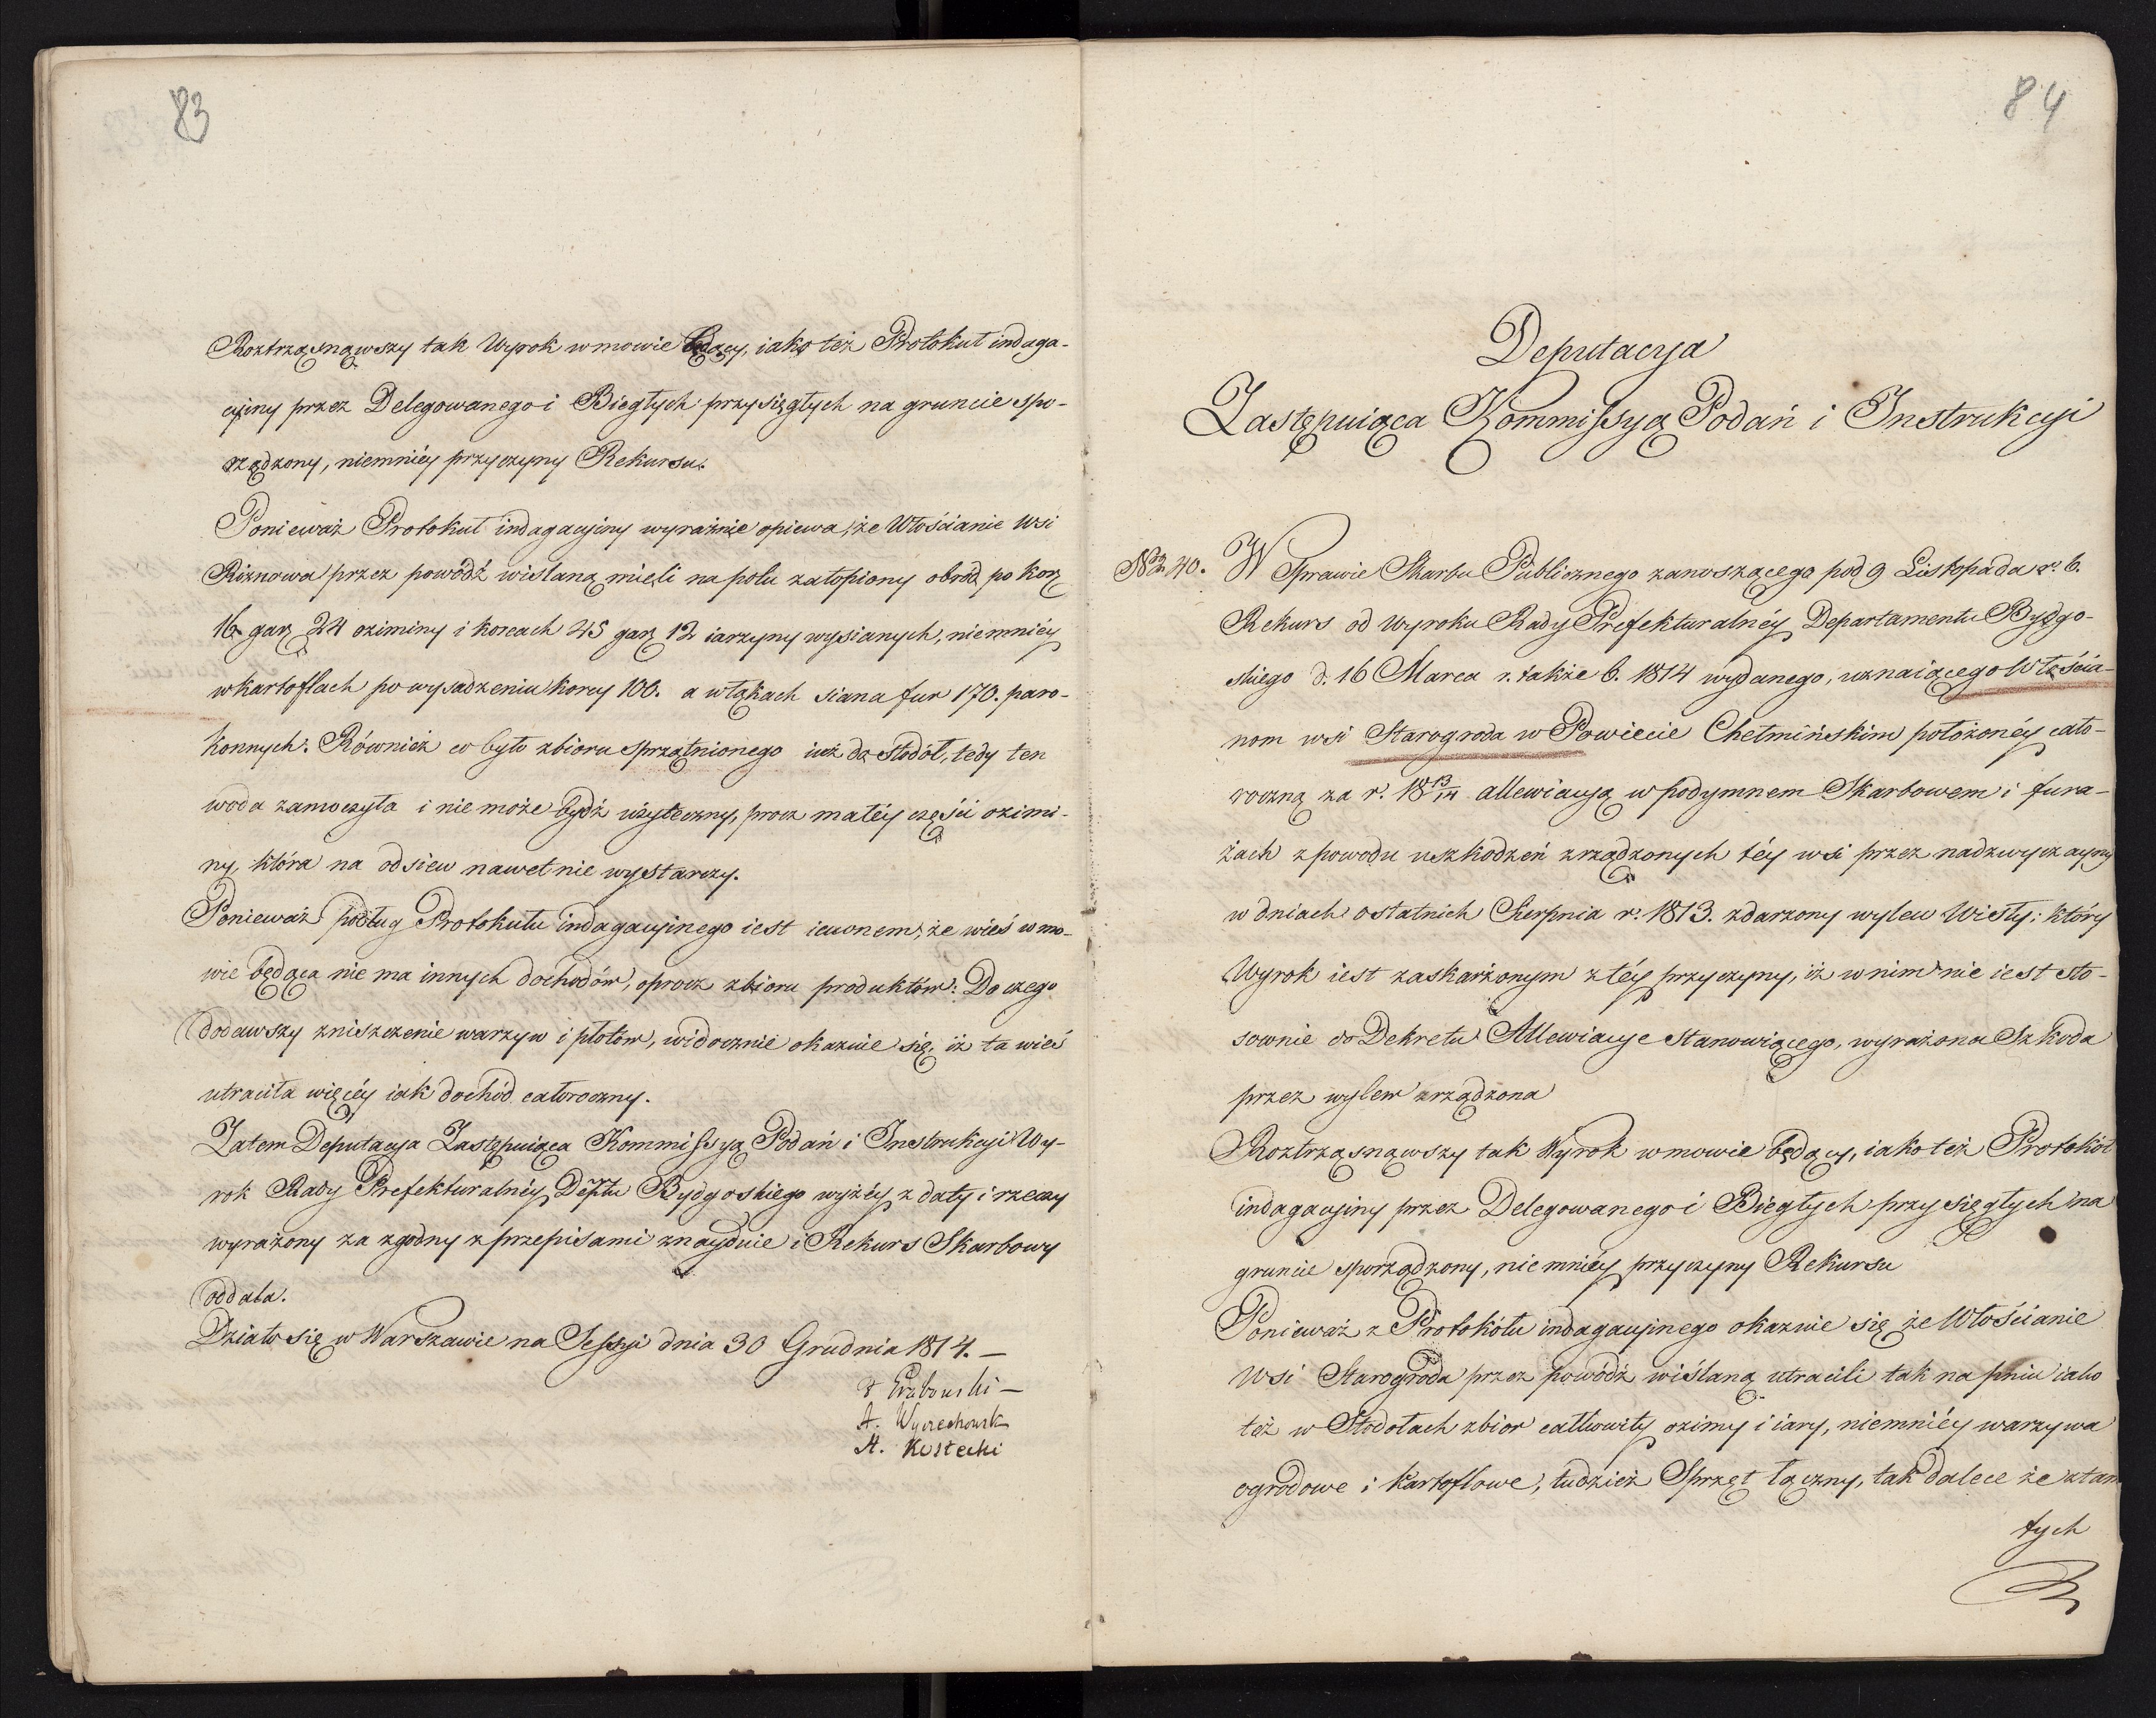 83
Roztrząsnąwszy tak Wyrok w mowie będący, iako też Protokuł indaga-
cyiny przez Delegowanego i Biegłych przysięgłych na gruncie spo-
rządzony, niemniéy przyczyny Rekursu.
Ponieważ Protokuł indagacyiny wyraźnie opiewa, że Włościanie Wsi
przez powódź wiślaną mieli na polu zatopiony obród po korz
16 garz 24 oziminy i korcach 45 garz 12 iarzyny wysianych, niemniéy
w kartoflach po wysadzeniu korcy 100. a w łąkach siana fur 170. paro-
konnych: Również co było zbioru sprzątnionego iuż do stodół, tedy ten
woda zamoczyła i nie może bydź użyteczny, procz małéy części ozimi-
ny, która na odsiew nawet nie wystarczy.
Ponieważ podług Protokułu indagacyinego iest iawnem, że wieś w mo-
wie będąca nie ma innych dochodów, oprocz zbioru produktów: Do czego
dodawszy zniszczenie warzyw i płotów, widocznie okazuie się, iż ta wieś
utraciła więcéy iak dochód całoroczny.
Zatem Deputacyja Zastępuiąca Kommissyą Podań i Instrukcyi Wy-
rok Rady Prefekturalnéy Deptu Bydgoskiego wyżéy z daty i rzeczy
wyrażony za zgodny z przepisami znayduie i Rekurs Skarbowy
oddala.
Działo się w Warszawie na Sessyi dnia 30 Grudnia 1814. —
Grabowski —
A. Wyczechowsk
A. Kostecki
84
Deputacyja
Zastępuiąca Kommissyą Podań i Instrukcyi
Nro 40. W Sprawie Skarbu Publicznego zanoszącego pod 9 Listopada r. b.
Rekurs od wyroku Rady Prefekturalnéy Departamentu Bydgo-
skiego d. 16 Marca r. także b. 1814 wydanego, uznaiącego Włościa-
nom wsi Starogroda w Powiecie Chełmińskim położonéy cało-
roczną za r. 18 13/14 allewiacyą w podymnem Skarbowem i fura-
żach z powodu uszkodzeń zrządzonych téy wsi przez nadzwyczayny
w dniach ostatnich Sierpnia r. 1813. zdarzony wylew Wisły: który
Wyrok iest zaskarżonym z téy przyczyny, iż w nim nie iest sto-
sownie do Dekretu Allewiacye stanowiącego, wyrażona Szkoda
przez wylew zrządzona
Roztrząsnąwszy tak Wyrok w mowie będący, iako też Protokół
indagacyiny przez Delegowanego i Biegłych przysięgłych na
gruncie sporządzony, niemniéy przyczyny Rekursu
Ponieważ z Protokółu indagacyinego okazuie się że Włościanie
Wsi Starogroda przez powódź wiślaną utracili tak na pniu iako
też w Stodołach zbior całkowity ozimy i iary, niemniéy warzywa
ogrodowe i kartoflowe, tudzież Sprzęt łączny, tak dalece że z tam
tych